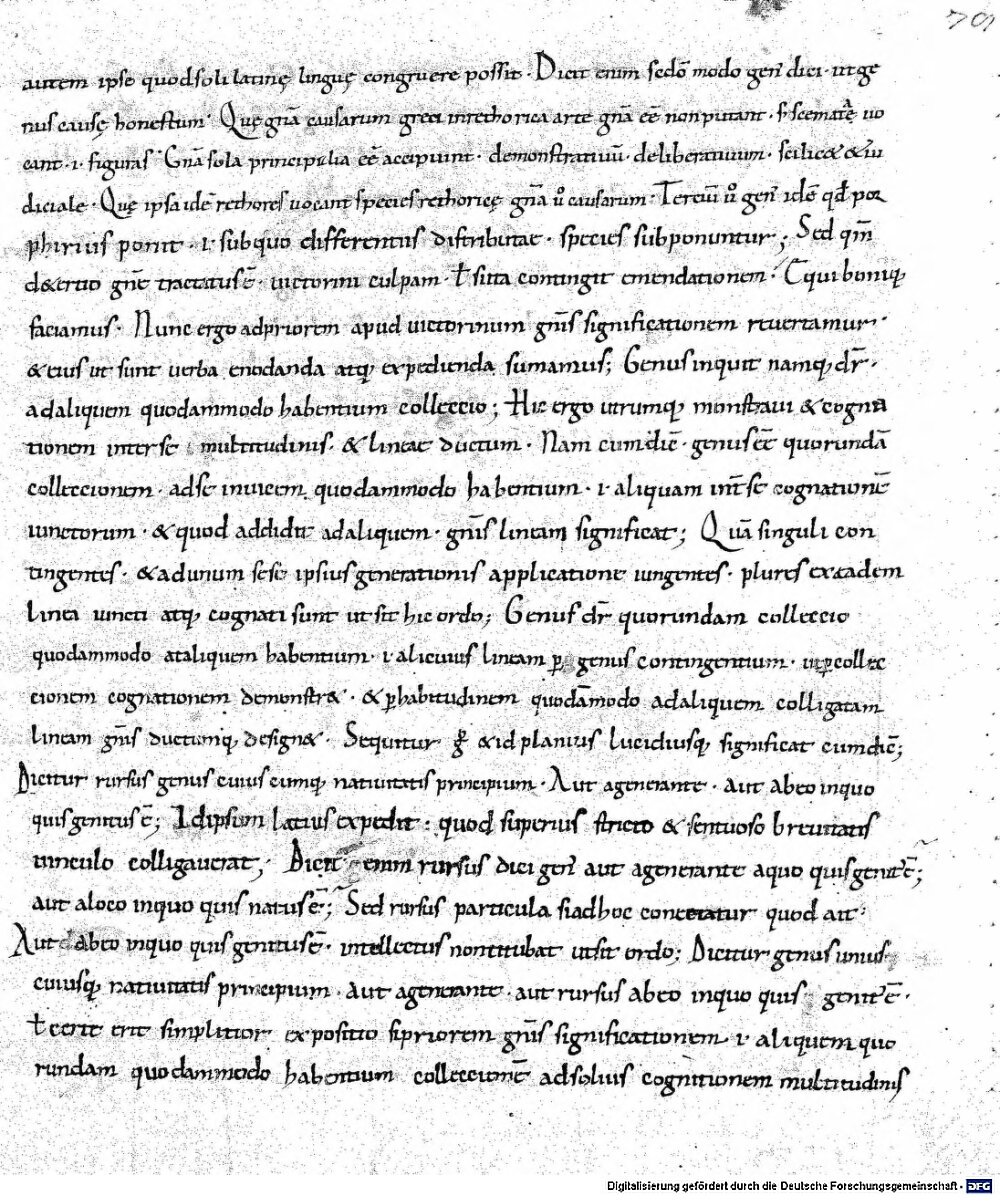 autem ipse quod soli latinę linguę congruere possit · Dicit enim sedo̅ modo gen̅ dici · ut ge
nus causę honestum · Quę gn̅a causarum greci in rethorica arte gn̅a ee̅ non putant · s; scemata uo
cant · i · figuras · Gn̅a sola principalia ee̅ accipiunt · demonstratiuu̅ · deliberatiuum · scilic& & iu
diciale · Quę ipsa ide̅ rethores uocant species rethoricę gn̅a u̅ causarum · Terciu̅ u̅ gen̅ ide̅ qd̅ por
phirius ponit · i · sub quo differentiis distributae · species subponuntur; Sed qm̅
d& ertio gn̅e tractatus e̅ · uictorini culpam · t̅ si ita contingit emendationem · Ęqui boniq;
faciamus · Nunc ergo ad priorem apud uictorinum gn̅is significationem reuertamur ·
& eius ut sunt uerba enodanda atq; expedienda sumamus; Genus inquit namq; dr̅ ·
ad aliquem quodammodo habentium colleccio; Hic ergo utrumq; monstraui & cogna
tionem inter se multitudinis · & lineae ductum · Nam cum dic̅ · genus ee̅ quorunda̅
colleccionem · ad se inuicem quodammodo habentium · i · aliquam int̅ se cognatione̅
iunctorum · & quod addidit ad aliquem · gn̅is lineam significat; Qua̅ singuli con
tingentes · & ad unum sese ipsius generationis applicatione iungentes · plures ex eadem
linea iuncti atq; cognati sunt ut sit hic ordo; Genus dr̅ quorundam colleccio
quodammodo at aliquem habentium · i · alicuius lineam p̲ genus contingentium · ut p̲ collec
cionem cognationem demonstr& · & p̲ habitudinem quoda̅modo ad aliquem colligatam
lineam gn̅is ductumq; design& · Sequitur g̅ & id planius lucidiusq; significat cum dic̅;
Dicitur rursus genus cuius cumq; natiuitatis principium · Aut a generante · aut ab eo in quo
quis genitus e̅; Id ipsum latius expedit · quod superius stricto & sentuoso breuitatis
uinculo colligauerat; Dicit enim rursus dici gen̅ aut a generante a quo quis genit' e̅;
aut a loco in quo quis natus e̅; Sed rursus particula si ad hoc conectatur quod ait ·
Aut ab eo in quo quis genitus e̅ · intellectus non titubat ut sit ordo; Dicitur genus unius
cuiusq; natiuitatis principium · aut a generante · aut rursus ab eo in quo quis genit' e̅ ·
t̅ certe erit simplitior expositio si priorem gn̅is significationem · i · aliquem quo
rundam quodammodo habentium colleccione̅ ad solius cognitionem multitudinis
Digitalisierung gefördert durch die Deutsche Forschungsgemeinschaft · DFG